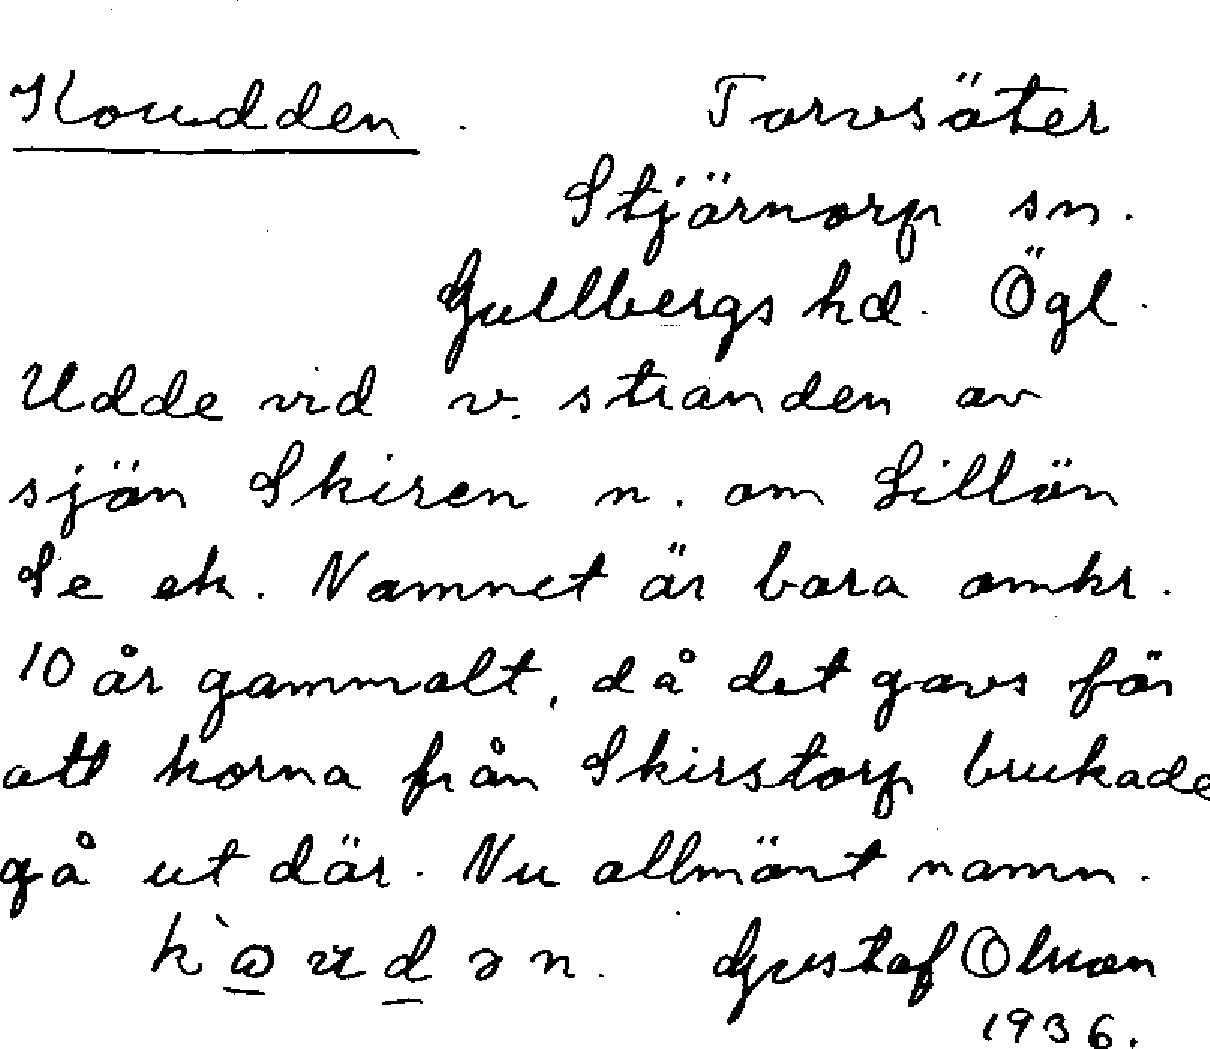 Koudden. Torvsäter
Stjärnorp sn.
Gullbergs hd. Ögl.
Udde vid v. stranden av
sjön Skiren n. om Lillön
Se ek. Namnet är bara omkr.
10 år gammalt, då det gavs för
att korna från Skirstorp brukade
gå ut där. Nu allmänt namn.
Gustaf Olsson
1936.